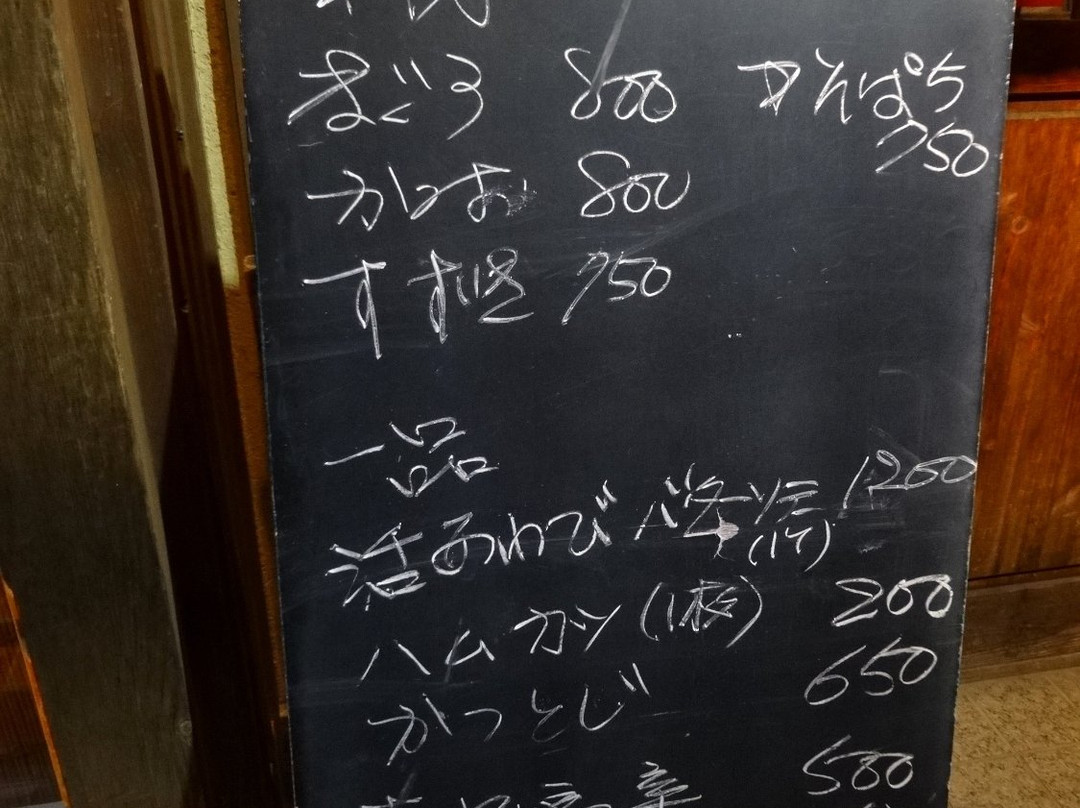 まぐろ 800 かんぱち
750
かつお 800
すずき 750
一品
活あわび バターソテー 1200
(1ケ)
ハムカツ (1枚) 200
かつとじ 650
580